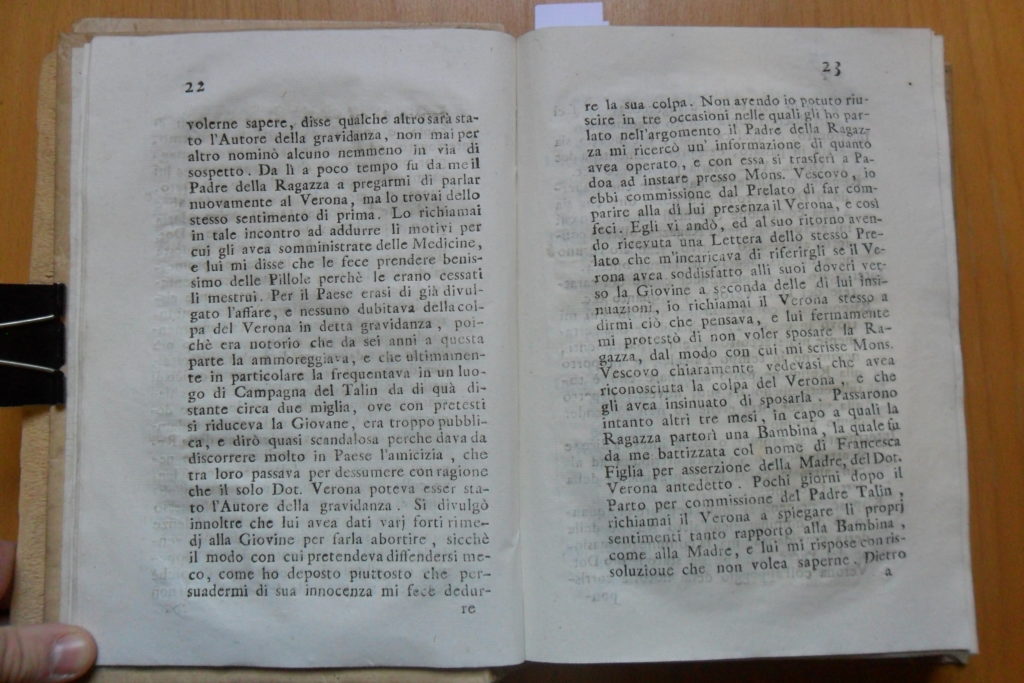 22
volerne sapere, disse qualche altro sarà sta-
to l'Autore della gravidanza, non mai per
altro nominò alcuno nemmeno in via di
sospetto. Da lì a poco tempo fu da me il
Padre della Ragazza a pregarmi di parlar
nuovamente al Verona, ma lo trovai dello
stesso sentimento di prima. Lo richiamai
in tale incontro ad addurre li motivi per
cui gli avea somministrate delle Medicine,
e lui mi disse che le fece prendere benis-
simo delle Pillole perchè le erano cessati
li mestrui. Per il Paese erasi di già divul-
gato l'affare, e nessuno dubitava della col-
pa del Verona in detta gravidanza, poi-
chè era notorio che da sei anni a questa
parte la ammoreggiava, e che ultimamen-
te in particolare la frequentava in un luo-
go di Campagna del Talin da di quà di-
stante circa due miglia, ove con pretesti
si riduceva la Giovane, era troppo pubbli-
ca, e dirò quasi scandalosa perche dava da
discorrere molto in Paese l'amicizia, che
tra loro passava per dessumere con ragione
che il solo Dot. Verona poteva esser sta-
to l'Autore della gravidanza. Si divulgò
innoltre che lui avea dati varj forti rime-
dj alla Giovine per farla abortire, sicchè
il modo con cui pretendeva diffendersi me-
co, come ho deposto piuttosto che per-
suadermi di sua innocenza mi fece dedur-
re
23
re la sua colpa. Non avendo io potuto riu-
scire in tre occasioni nelle quali gli ho par-
lato nell'argomento il Padre della Ragaz-
za mi ricercò un' informazione di quanto
avea operato, e con essa si trasferì a Pa-
doa ad instare presso Mons. Vescovo, io
ebbi commissione dal Prelato di far com-
parire alla di lui presenza il Verona, e così
feci. Egli vi andò, ed al suo ritorno aven-
do ricevuta una Lettera dello stesso Pre-
lato che m'incaricava di riferirgli se il Ve-
rona avea soddisfatto alli suoi doveri ver-
so la Giovine a seconda delle di lui insi-
nuazioni, io richiamai il Verona stesso a
dirmi ciò che pensava, e lui fermamente
mi protestò di non voler sposare la Ra-
gazza, dal modo con cui mi scrisse Mons.
Vescovo chiaramente vedevasi che avea
riconosciuta la colpa del Verona, e che
gli avea insinuato di sposarla. Passarono
intanto altri tre mesi, in capo a quali la
Ragazza partorì una Bambina, la quale fu
da me battizzata col nome di Francesca
Figlia per asserzione della Madre, del Dot.
Verona antedetto. Pochi giorni dopo il
Parto per commissione del Padre Talin,
richiamai il Verona a spiegare li proprj
sentimenti tanto rapporto alla Bambina,
come alla Madre, e lui mi rispose con ris-
soluzioue che non volea saperne. Dietro
a